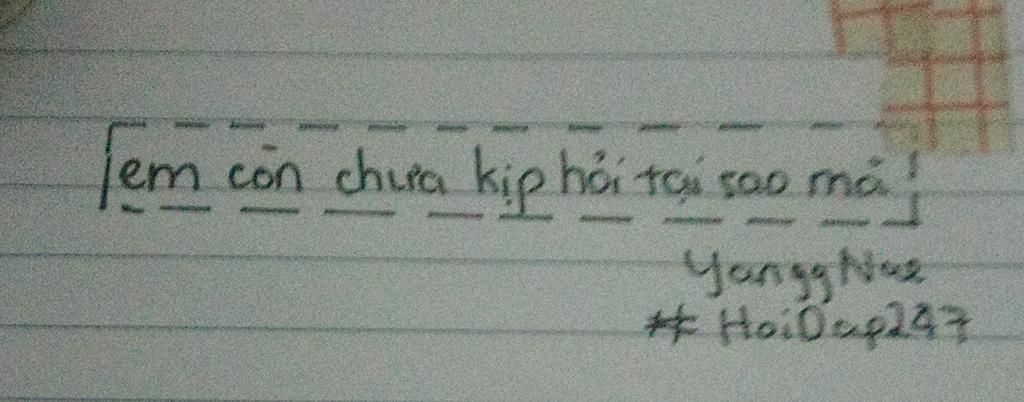 em còn chưa kịp hỏi tại sao mà!
YanggNae
# HoiDap247